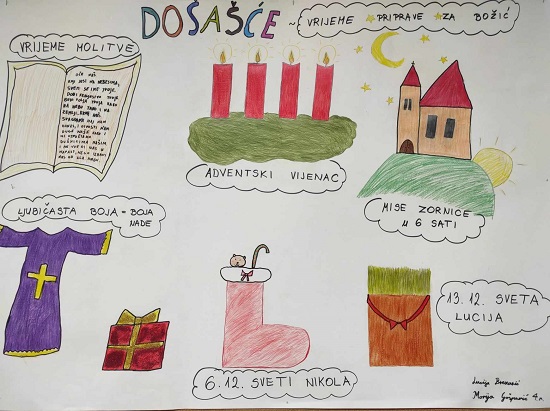 DOŠAŠĆE ~ VRIJEME PRIPRAVE ZA BOŽIĆ
VRIJEME MOLITVE
OČE NAŠ
KOJI JESI NA NEBESIMA,
SVETI SE IME TVOJE,
DOĐI KRALJEVSTVO TVOJE
BUDI VOLJA TVOJA KAKO
NA NEBU TAKO I NA
ZEMLJI. KRUH NAŠ
SVAGDANJI DAJ NAM
DANAS, I OTPUSTI NAM
DUGE NAŠE KAKO I
MI OTPUŠTAMO
DUŽNICIMA NAŠIM
I NE UVEDI NAS U
NAPAST, NEGO IZBAVI
NAS OD ZLA. AMEN
ADVENTSKI VIJENAC
MISE ZORNICE
U 6 SATI
LJUBIČASTA BOJA = BOJA
NADE
6.12. SVETI NIKOLA
13.12. SVETA
LUCIJA
Lucija
Marija 4.a